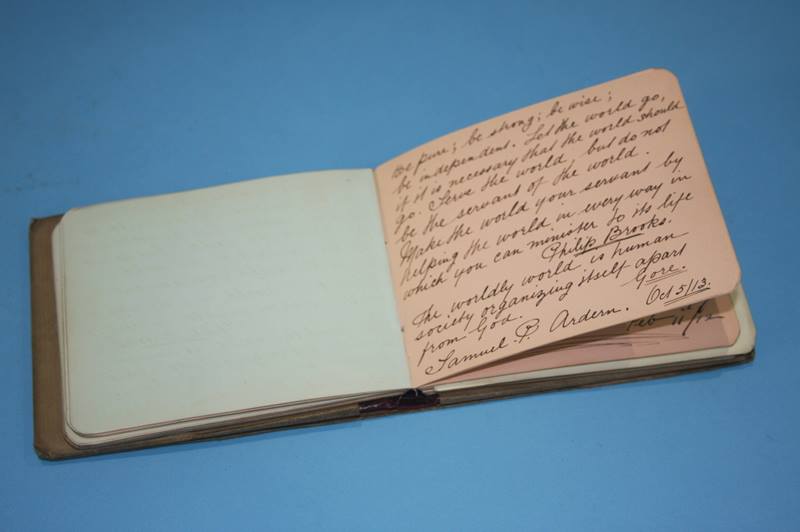 Be pure; be strong; be wise;
be independent. Let the world go,
if it is necessary that the world should
go. Serve the world, but do not
be the servant of the world.
Make the world your servant by
helping the world in every way in
which you can minister to its life
Philip Brooks.
The worldly world is human
society organizing itself apart
from God. Gore.
Samuel P. Ardern. Oct 5/13.
Feb 11/12